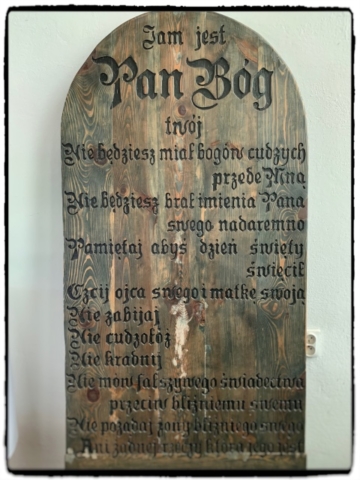 Jam jest
Pan Bóg
twój
Nie będziesz miał bogów cudzych
przede Mną
Nie będziesz brał imienia Pana
swego nadaremno
Pamiętaj abyś dzień święty
święcił
Czcij ojca swego i matkę swoją
Nie zabijaj
Nie cudzołóż
Nie kradnij
Nie mów fałszywego świadectwa
przeciw bliźniemu swemu
Nie pożądaj żony bliźniego swego
Ani żadnej rzeczy która jego jest